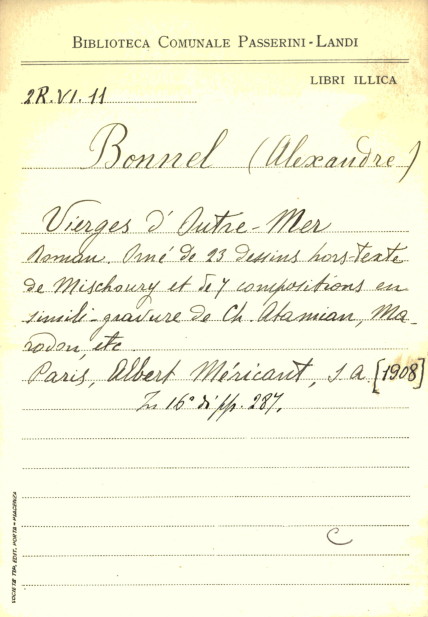 BIBLIOTECA COMUNALE PASSERINI-LANDI
LIBRI ILLICA
2R.VI.11
Bonnel (Alexandre)
Vierges d'Outre-Mer
Roman. Orné de 23 dessins hors-texte
de Mischoury et de 7 compositions en
simili-gravure de Ch. Atamian, Ma-
rodon, etc
Paris, Albert Méricant, s.a. [1908]
In 16° di pp. 287.
C
SOCIETÀ TIP. EDIT. PORTA - PIACENZA